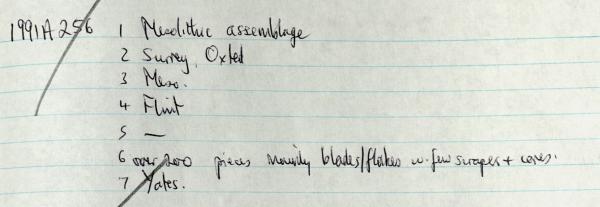 1991A256 1 Mesolithic assemblage
2 Surrey, Oxted
3 Meso.
4 Flint
5 —
6 over 200 pieces mainly blades/flakes w. few scrapers + cores.
7 Yates.